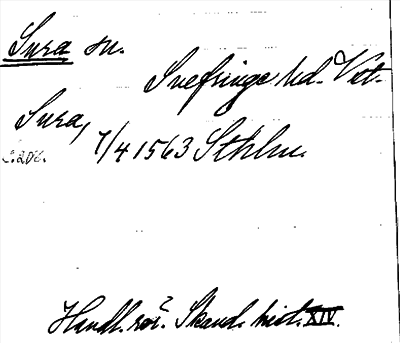 Sura sn.
Snefringe hd. Vstm.
Sura,
7/4 1563 Sthlm.
Handl. rör. Skand. hist. XIV.